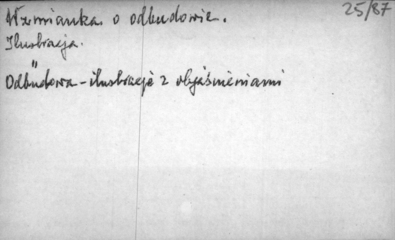 Wzmianka o odbudowie. 25/87
Ilustracja.
"
Odbudowa - ilustracje z objaśnieniami